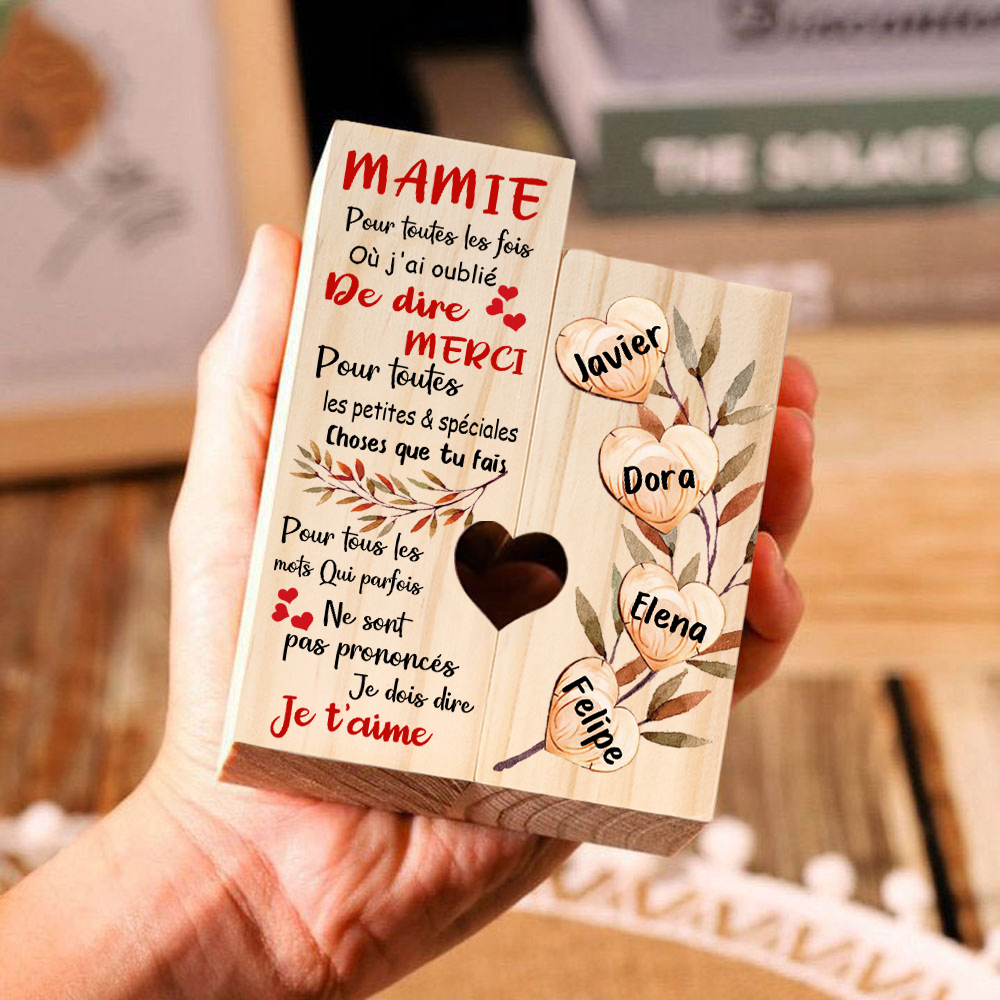 MAMIE
Pour toutes les fois
Où j'ai oublié
De dire
MERCI
Pour toutes
les petites & spéciales
Choses que tu fais
Pour tous les
mots Qui parfois
Ne sont
pas prononcés
Je dois dire
Je t'aime
Javier
Dora
Elena
Felipe
THE SOLACE